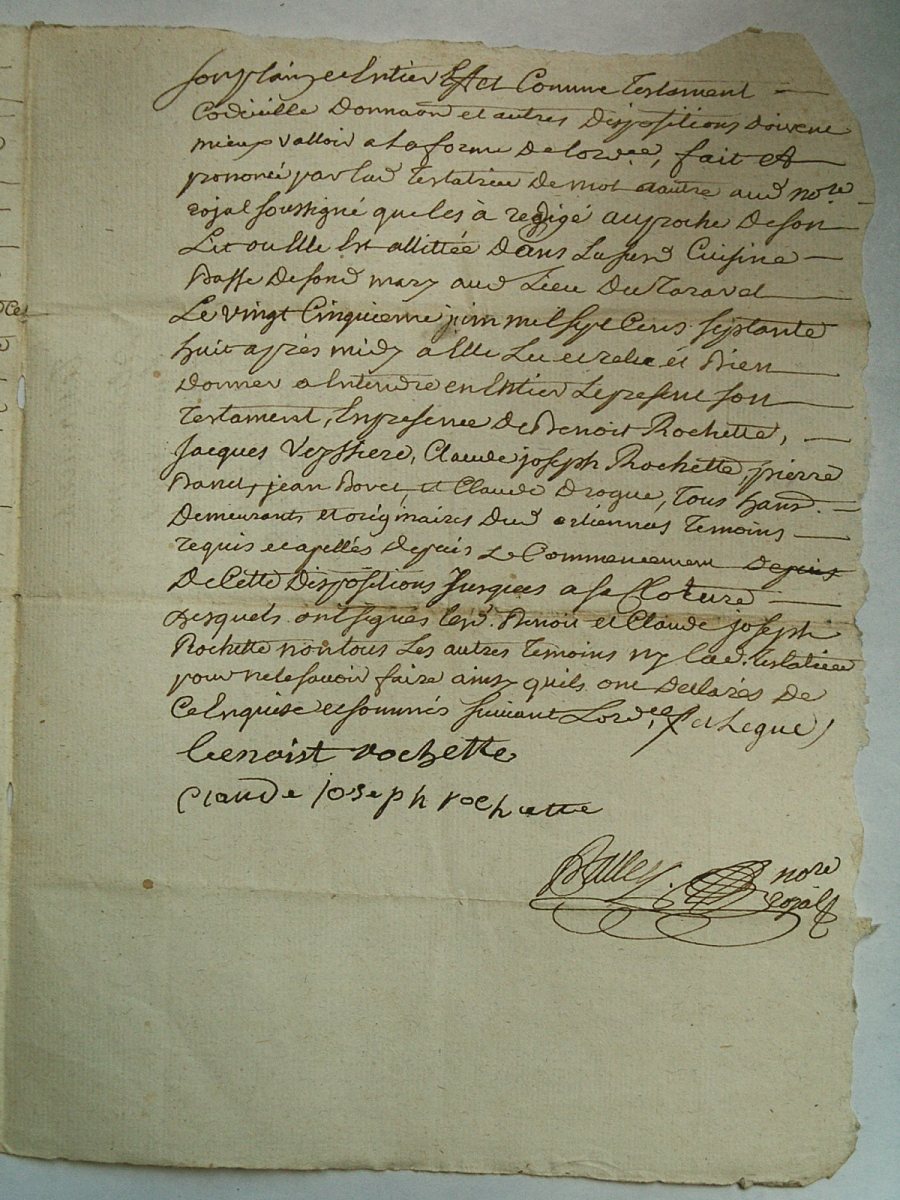 son plain et Entier Effet Comme Testament
Codicille Donnaon et autres Dispositions Doivent
mieux valloir a la forme De lordce, fait et
prononcé par lad Testatrice De mot a autre aud nore
roial soussigné que les à redigé au proche De son
Lit ou Elle Est allittée Dans La sud Cuisine
Basse De sond mary aud Lieu Du Taravel
Le vingt Cinquieme juin mil sept Cens septante
huit après midy a Elle Lu et relu et Bien
Donner a Entendre en Entier Le present son
Testament, En presence De Benoit Rochette,
Jacques Veyssiere, Claude joseph Rochette, pierre
jean Bovet, et Claude Drogue, Tous hans.
Demeurants et originaires Dud Temoins
requis et apellés Depuis Le Commencement Depuis
De Cette Dispositions Jusques a sa Cloture
Desquels ont signés lesd. Benoit et Claude joseph
Rochette non tous Les autres Temoins ny lad. Testatrice
pour ne le savoir faire ainsy quils ont Declarés De
Ce Enquise et sommés suivant Lordce,
benoist rochette
claude joseph rochette
nore
roial